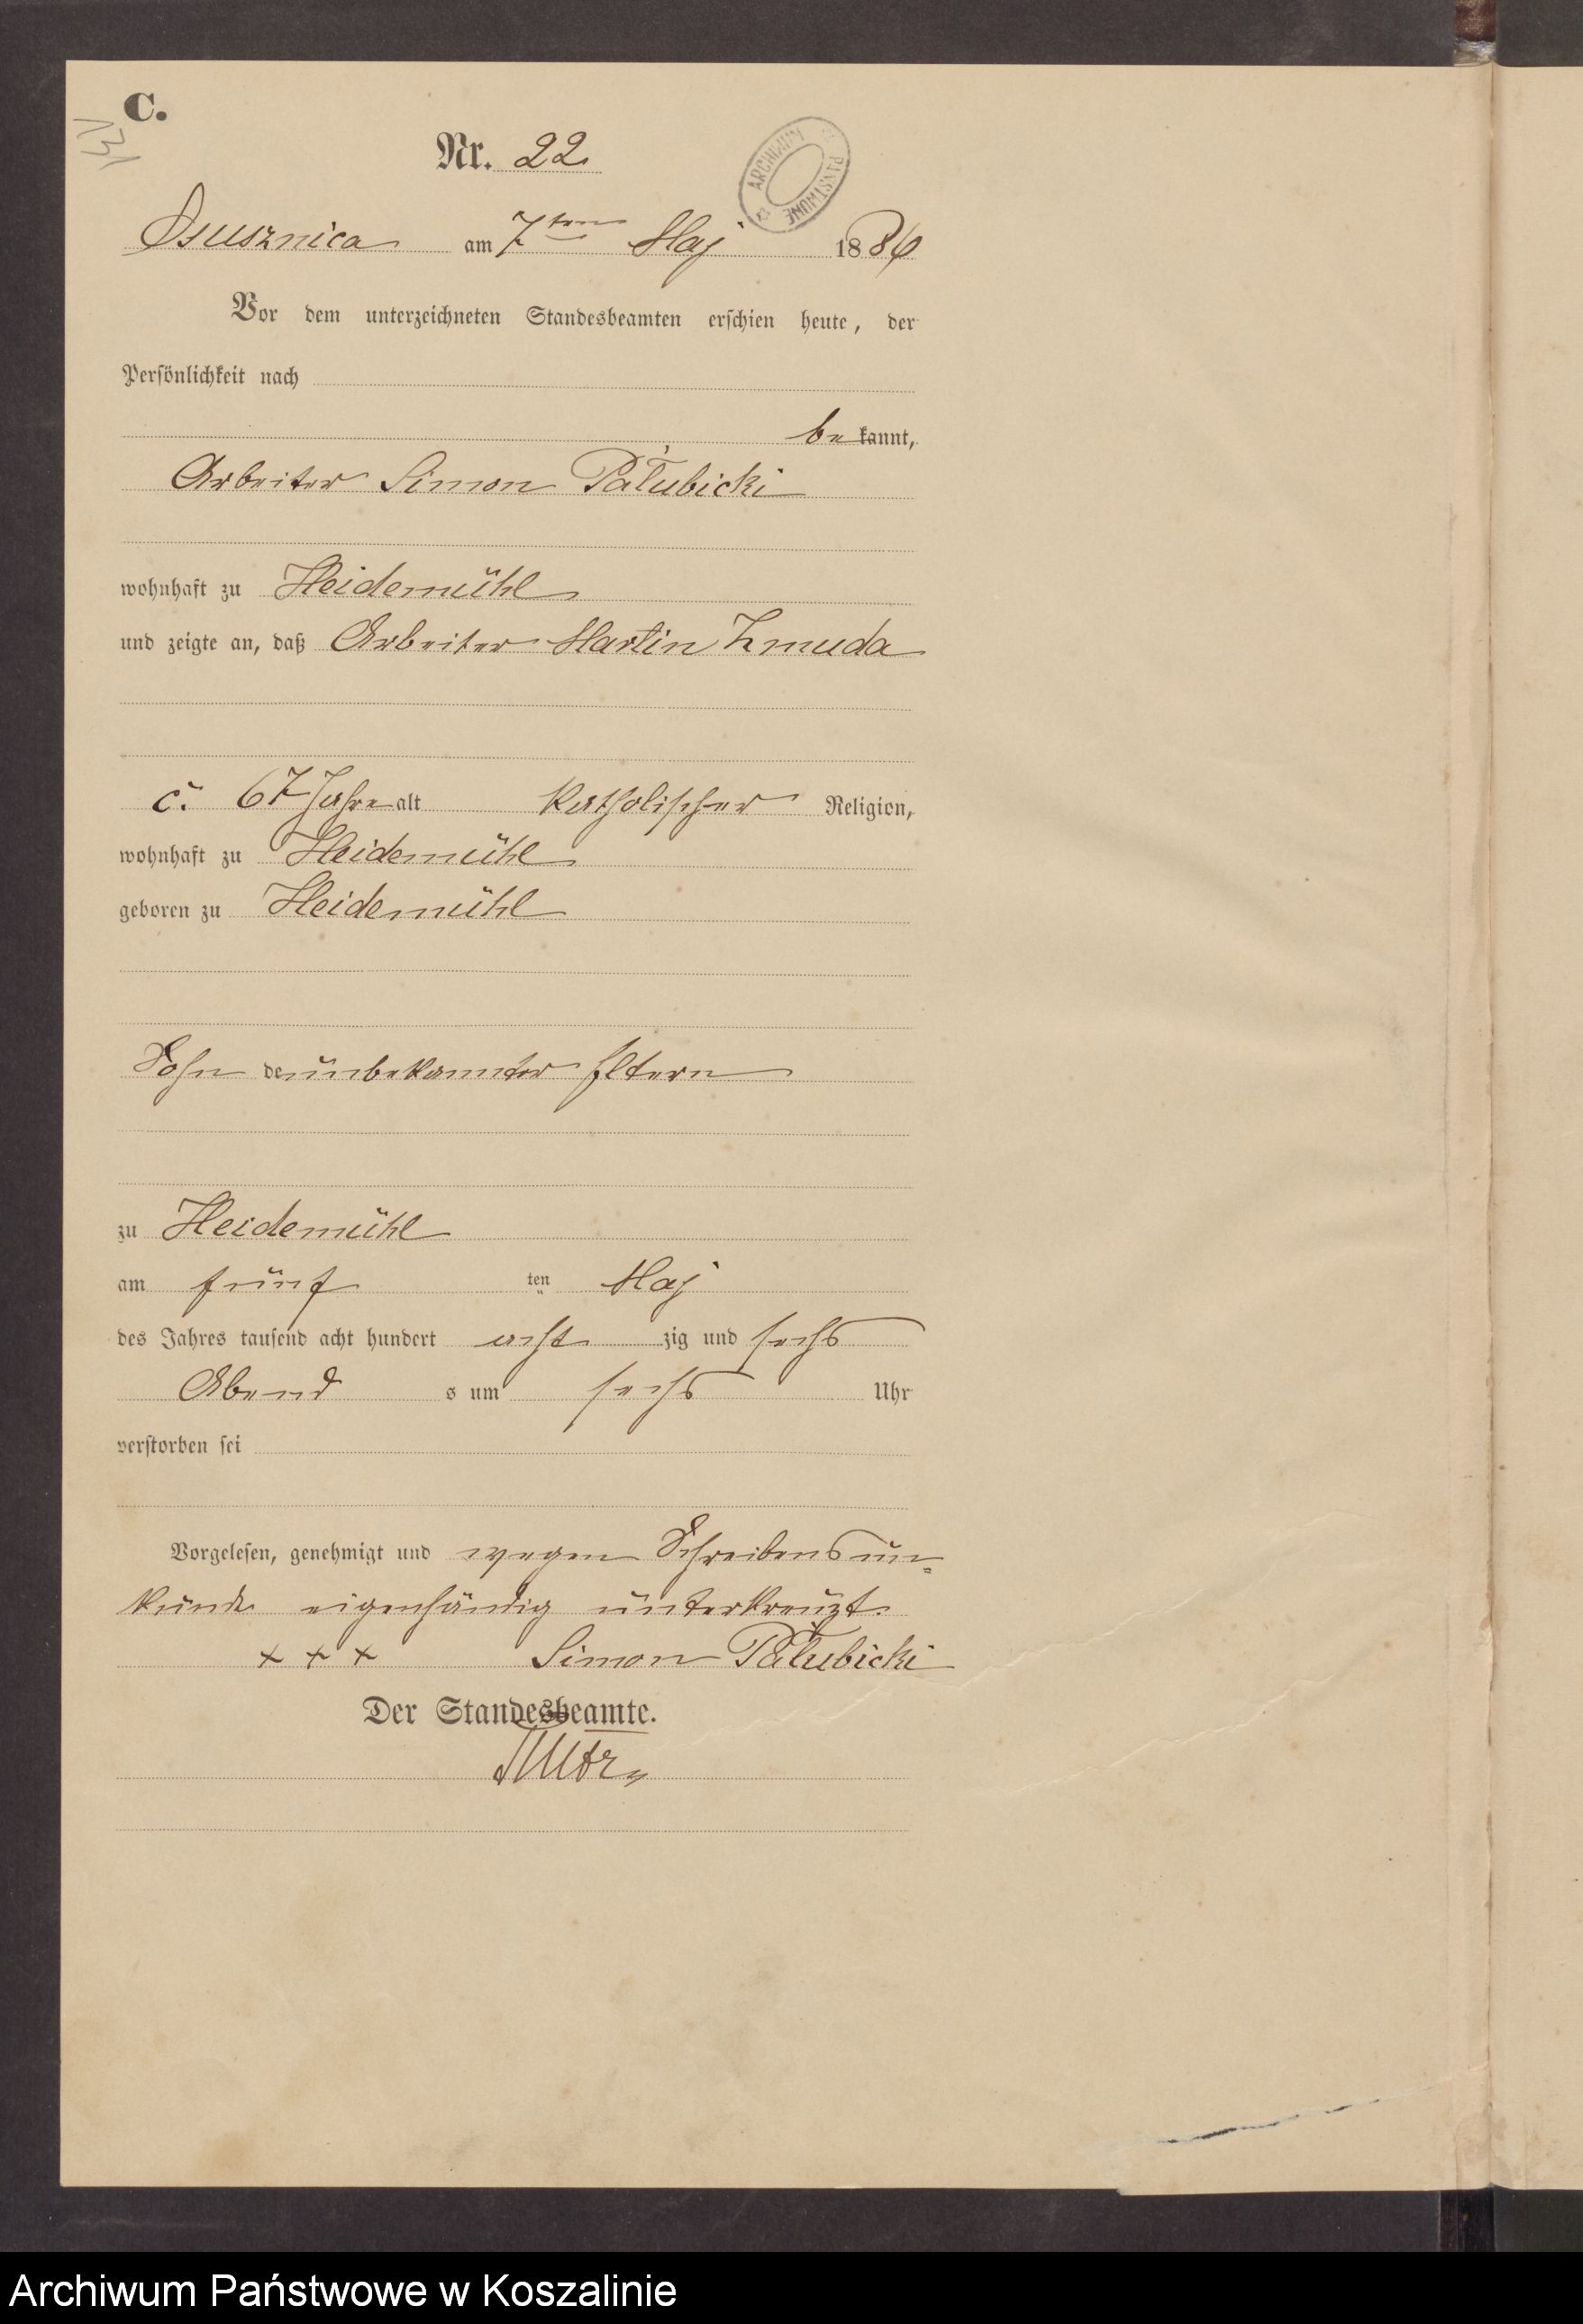 C.
131
Nr. 22
ARCHIWUM PAŃSTWOWE
Osusznica am 7ten Maj 1886
Vor dem unterzeichneten Standesbeamten erschien heute, der
Persönlichkeit nach
be kannt,
Arbeiter Simon Pałubicki
wohnhaft zu Heidemühl
und zeigte an, daß Arbeiter Martin Zmuda
c. 67 Jahre alt katholischer Religion,
wohnhaft zu Heidemühl
geboren zu Heidemühl
Sohn de unbekannter Eltern
zu Heidemühl
am fünf ten Maj
des Jahres tausend acht hundert acht zig und sechs
Abend s um sechs Uhr
verstorben sei
Vorgelesen, genehmigt und wegen Schreibensun-
kunde eigenhändig unterkreuzt.
+ + + Simon Pałubicki
Der Standesbeamte.
Archiwum Państwowe w Koszalinie